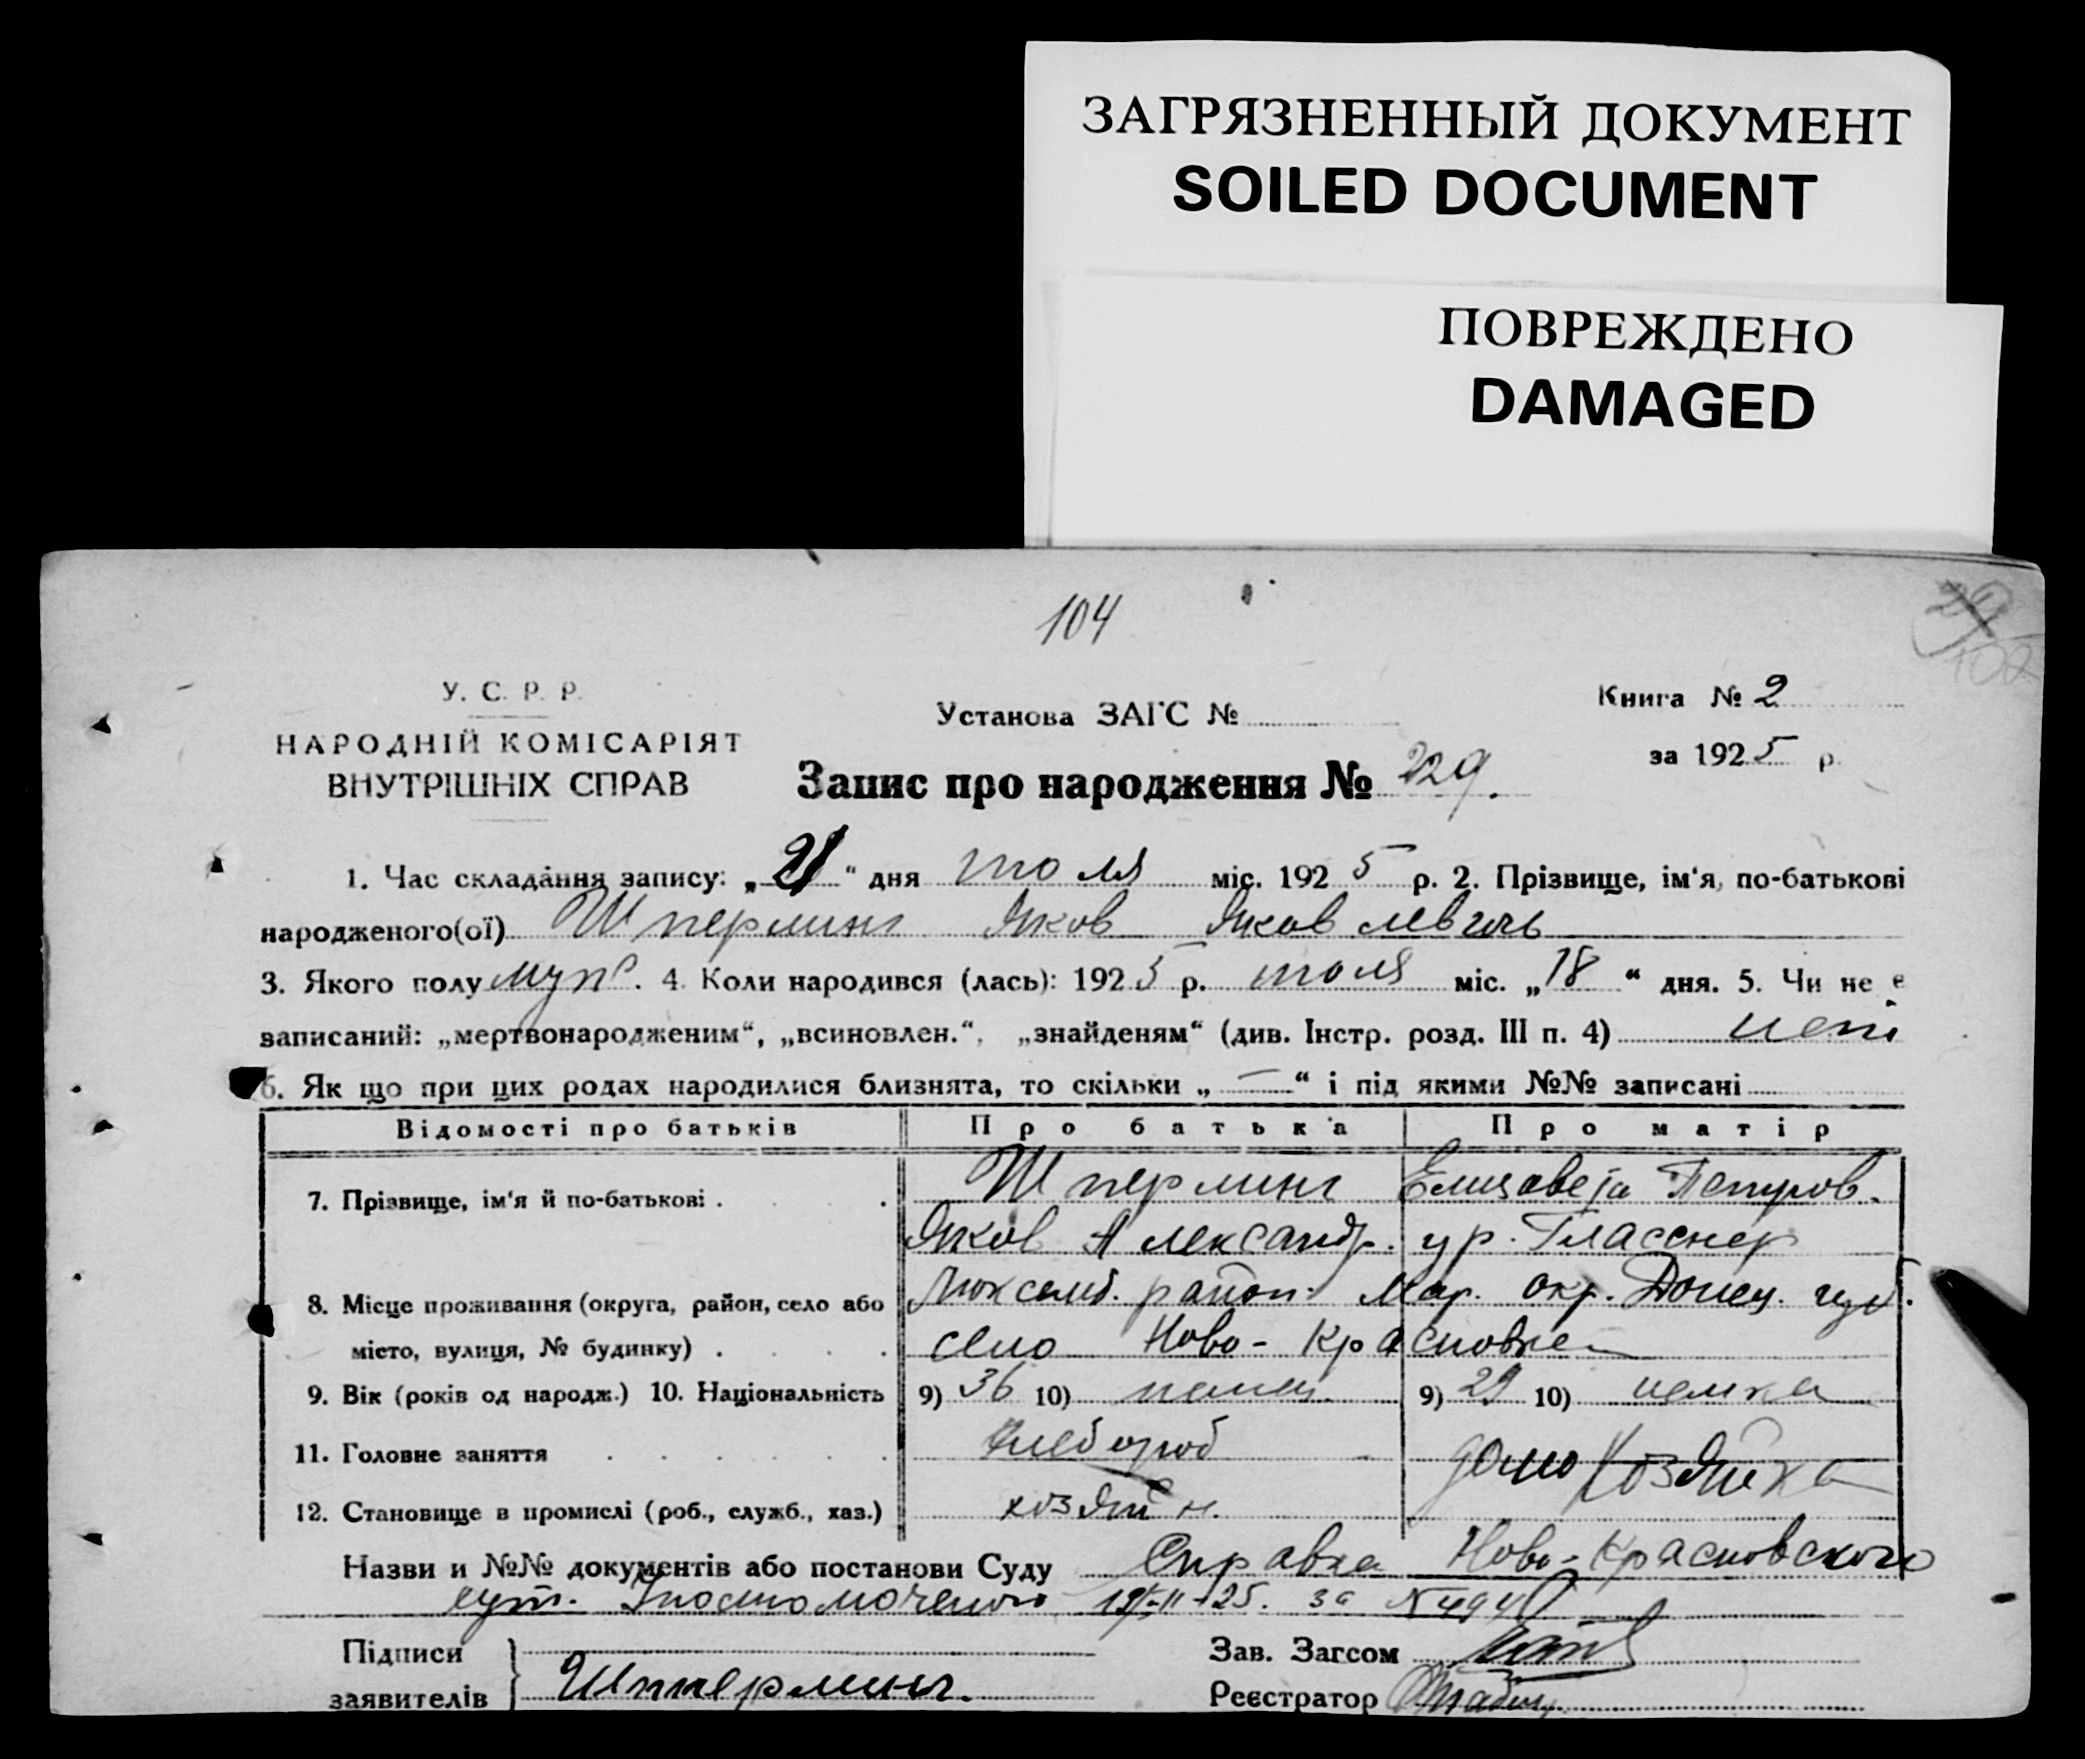 ЗАГРЯЗНЕННЫЙ ДОКУМЕНТ
SOILED DOCUMENT
ПОВРЕЖДЕНО
DAMAGED
104
29
У. С. Р. Р.
НАРОДНІЙ КОМІСАРІЯТ
ВНУТРІШНІХ СПРАВ
Установа ЗАГС №
Книга № 2
за 1925 р.
Запис про народження № 229.
1. Час складання запису: „21“ дня июля міс. 1925 р. 2. Прізвище, ім‘я, по-батькові
народженого(ої) Шперлинг Яков Яковлевичь
3. Якого полу муж. 4. Коли народився (лась): 1925 р. июля міс. „18“ дня. 5. Чи не є
записаний: „мертвонародженим“, „всиновлен.“, „знайденям“ (див. Інстр. розд. III п. 4) нет
6. Як що при цих родах народилися близнята, то скільки „—“ і під якими №№ записані
Відомості про батьків Про батька Про матір
7. Прізвище, ім‘я й по-батькові . . Шперлинг Елизавета Петров.
Яков Александр. ур. Гласнер
8. Місце проживання (округа, район, село або Люксемб. район Мар. окр. Донец. губ.
місто, вулиця, № будинку) . . . . село Ново-Красновке
9. Вік (років од народж.) 10. Національність 9) 36 10) немец. 9) 29 10) немка
11. Головне заняття . . . . . хлебороб домохозяйка
12. Становище в промислі (роб., служб., хаз.) хозяин.
Назви и №№ документів або постанови Суду Справка Ново-Красновского
Уполномоченого за №
Підписи
заявителів } Шперлинг.
Зав. Загсом
Реєстратор